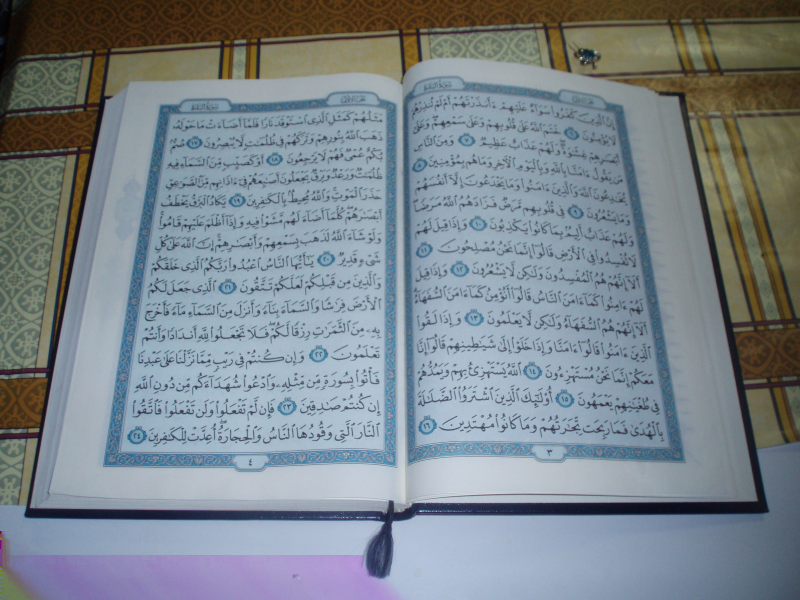 سُورَةُ البَقَرَةِ
الجُزْءُ الأَوَّلُ
إِنَّ الَّذِينَ كَفَرُوا سَوَاءٌ عَلَيْهِمْ ءَأَنذَرْتَهُمْ أَمْ لَمْ تُنذِرْهُمْ
لَا يُؤْمِنُونَ ٦ خَتَمَ اللَّهُ عَلَىٰ قُلُوبِهِمْ وَعَلَىٰ سَمْعِهِمْ وَعَلَىٰ
أَبْصَٰرِهِمْ غِشَٰوَةٌ وَلَهُمْ عَذَابٌ عَظِيمٌ ٧ وَمِنَ النَّاسِ
مَن يَقُولُ ءَامَنَّا بِاللَّهِ وَبِالْيَوْمِ الْءَاخِرِ وَمَا هُم بِمُؤْمِنِينَ ٨
يُخَٰدِعُونَ اللَّهَ وَالَّذِينَ ءَامَنُوا وَمَا يَخْدَعُونَ إِلَّا أَنفُسَهُمْ
وَمَا يَشْعُرُونَ ٩ فِي قُلُوبِهِم مَّرَضٌ فَزَادَهُمُ اللَّهُ مَرَضًا
وَلَهُمْ عَذَابٌ أَلِيمٌ بِمَا كَانُوا يَكْذِبُونَ ١٠ وَإِذَا قِيلَ لَهُمْ
لَا تُفْسِدُوا فِي الْأَرْضِ قَالُوا إِنَّمَا نَحْنُ مُصْلِحُونَ ١١
أَلَا إِنَّهُمْ هُمُ الْمُفْسِدُونَ وَلَٰكِن لَّا يَشْعُرُونَ ١٢ وَإِذَا قِيلَ
لَهُمْ ءَامِنُوا كَمَا ءَامَنَ النَّاسُ قَالُوا أَنُؤْمِنُ كَمَا ءَامَنَ السُّفَهَاءُ
أَلَا إِنَّهُمْ هُمُ السُّفَهَاءُ وَلَٰكِن لَّا يَعْلَمُونَ ١٣ وَإِذَا لَقُوا
الَّذِينَ ءَامَنُوا قَالُوا ءَامَنَّا وَإِذَا خَلَوْا إِلَىٰ شَيَٰطِينِهِمْ قَالُوا إِنَّا
مَعَكُمْ إِنَّمَا نَحْنُ مُسْتَهْزِءُونَ ١٤ اللَّهُ يَسْتَهْزِئُ بِهِمْ وَيَمُدُّهُمْ
فِي طُغْيَٰنِهِمْ يَعْمَهُونَ ١٥ أُولَٰئِكَ الَّذِينَ اشْتَرَوُا الضَّلَٰلَةَ
بِالْهُدَىٰ فَمَا رَبِحَت تِّجَٰرَتُهُمْ وَمَا كَانُوا مُهْتَدِينَ ١٦
٣
سُورَةُ البَقَرَةِ
الجُزْءُ الأَوَّلُ
مَثَلُهُمْ كَمَثَلِ الَّذِي اسْتَوْقَدَ نَارًا فَلَمَّا أَضَاءَتْ مَا حَوْلَهُ
ذَهَبَ اللَّهُ بِنُورِهِمْ وَتَرَكَهُمْ فِي ظُلُمَٰتٍ لَّا يُبْصِرُونَ ١٧ صُمٌّ
بُكْمٌ عُمْيٌ فَهُمْ لَا يَرْجِعُونَ ١٨ أَوْ كَصَيِّبٍ مِّنَ السَّمَاءِ فِيهِ
ظُلُمَٰتٌ وَرَعْدٌ وَبَرْقٌ يَجْعَلُونَ أَصَٰبِعَهُمْ فِي ءَاذَانِهِم مِّنَ الصَّوَٰعِقِ
حَذَرَ الْمَوْتِ وَاللَّهُ مُحِيطٌ بِالْكَٰفِرِينَ ١٩ يَكَادُ الْبَرْقُ يَخْطَفُ
أَبْصَٰرَهُمْ كُلَّمَا أَضَاءَ لَهُم مَّشَوْا فِيهِ وَإِذَا أَظْلَمَ عَلَيْهِمْ قَامُوا
وَلَوْ شَاءَ اللَّهُ لَذَهَبَ بِسَمْعِهِمْ وَأَبْصَٰرِهِمْ إِنَّ اللَّهَ عَلَىٰ كُلِّ
شَيْءٍ قَدِيرٌ ٢٠ يَٰأَيُّهَا النَّاسُ اعْبُدُوا رَبَّكُمُ الَّذِي خَلَقَكُمْ
وَالَّذِينَ مِن قَبْلِكُمْ لَعَلَّكُمْ تَتَّقُونَ ٢١ الَّذِي جَعَلَ لَكُمُ
الْأَرْضَ فِرَٰشًا وَالسَّمَاءَ بِنَاءً وَأَنزَلَ مِنَ السَّمَاءِ مَاءً فَأَخْرَجَ
بِهِ مِنَ الثَّمَرَٰتِ رِزْقًا لَّكُمْ فَلَا تَجْعَلُوا لِلَّهِ أَندَادًا وَأَنتُمْ
تَعْلَمُونَ ٢٢ وَإِن كُنتُمْ فِي رَيْبٍ مِّمَّا نَزَّلْنَا عَلَىٰ عَبْدِنَا
فَأْتُوا بِسُورَةٍ مِّن مِّثْلِهِ وَادْعُوا شُهَدَاءَكُم مِّن دُونِ اللَّهِ
إِن كُنتُمْ صَٰدِقِينَ ٢٣ فَإِن لَّمْ تَفْعَلُوا وَلَن تَفْعَلُوا فَاتَّقُوا
النَّارَ الَّتِي وَقُودُهَا النَّاسُ وَالْحِجَارَةُ أُعِدَّتْ لِلْكَٰفِرِينَ ٢٤
٤